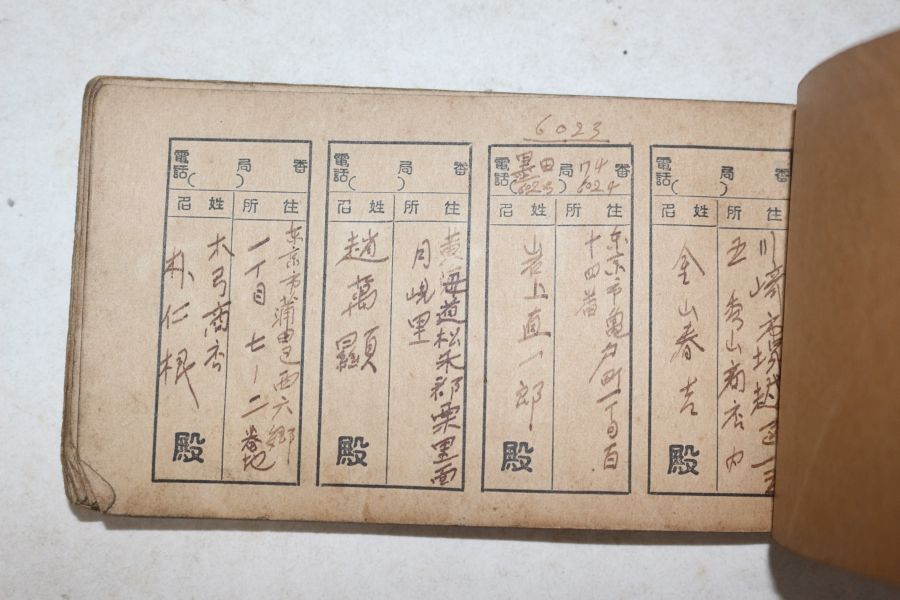 6023
電話( )局 番
住所
川崎市
五 秀山商店内
姓名
金山春吉
殿
電話(墨田)局 174 番
6023 6024
住所
东京市亀戸町一丁目百
十四番
姓名
岩上直一郎
殿
電話( )局 番
住所
黄海道松禾郡栗里面
月峴里
姓名
趙萬顯
殿
電話( )局 番
住所
东京市蒲田区西六郷
一丁目七ー二番地
姓名
木弓商店
朴仁根
殿